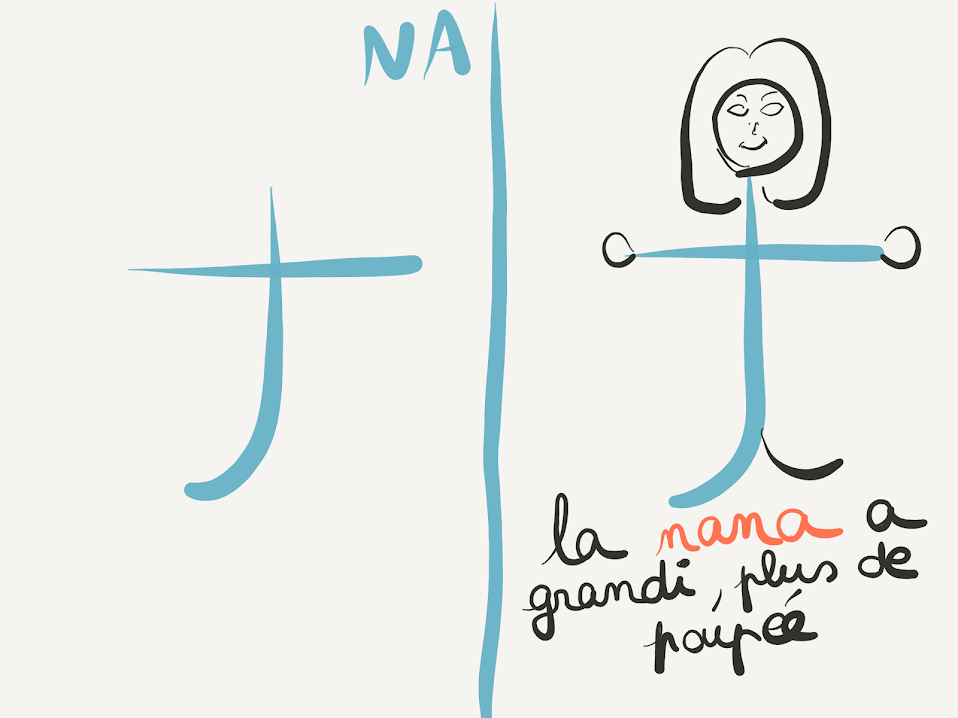 NA
ナ
la nana a
grandi, plus de
poupée